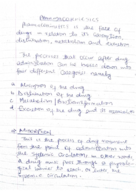 Pharmacokinetics
Pharmacokinetics is the fate of
drug in relation to its absorption,
distribution, metabolism and excretion
The processes that occur after drug
administration can be broken down into
four different categories namely
a Absorption of the drug
b Distribution of the drug
c Metabolism / Biotransformation
d Excretion of the drug and its
a) Absorption
This is the process of drug movement
from the site of administration into
the systemic circulation. In other words
a drug must pass through a
in order to reach
systemic circulation.